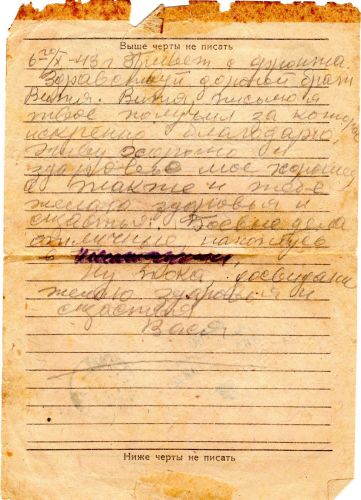 Выше черты не писать
20/X-43 г Привет с фронта.
Здравствуй дорогой брат
Витя. Витя, письмо я
твое получил за которое
искренно благодарю
живу хорошо и
здоровье мое хорошее
а также и тебе
желаю здоровья и
счастья. Боевые дела
отлично, нахожусь
в
Ну пока, досвидания
желаю здоровья и
счастья
Вася
Ниже черты не писать